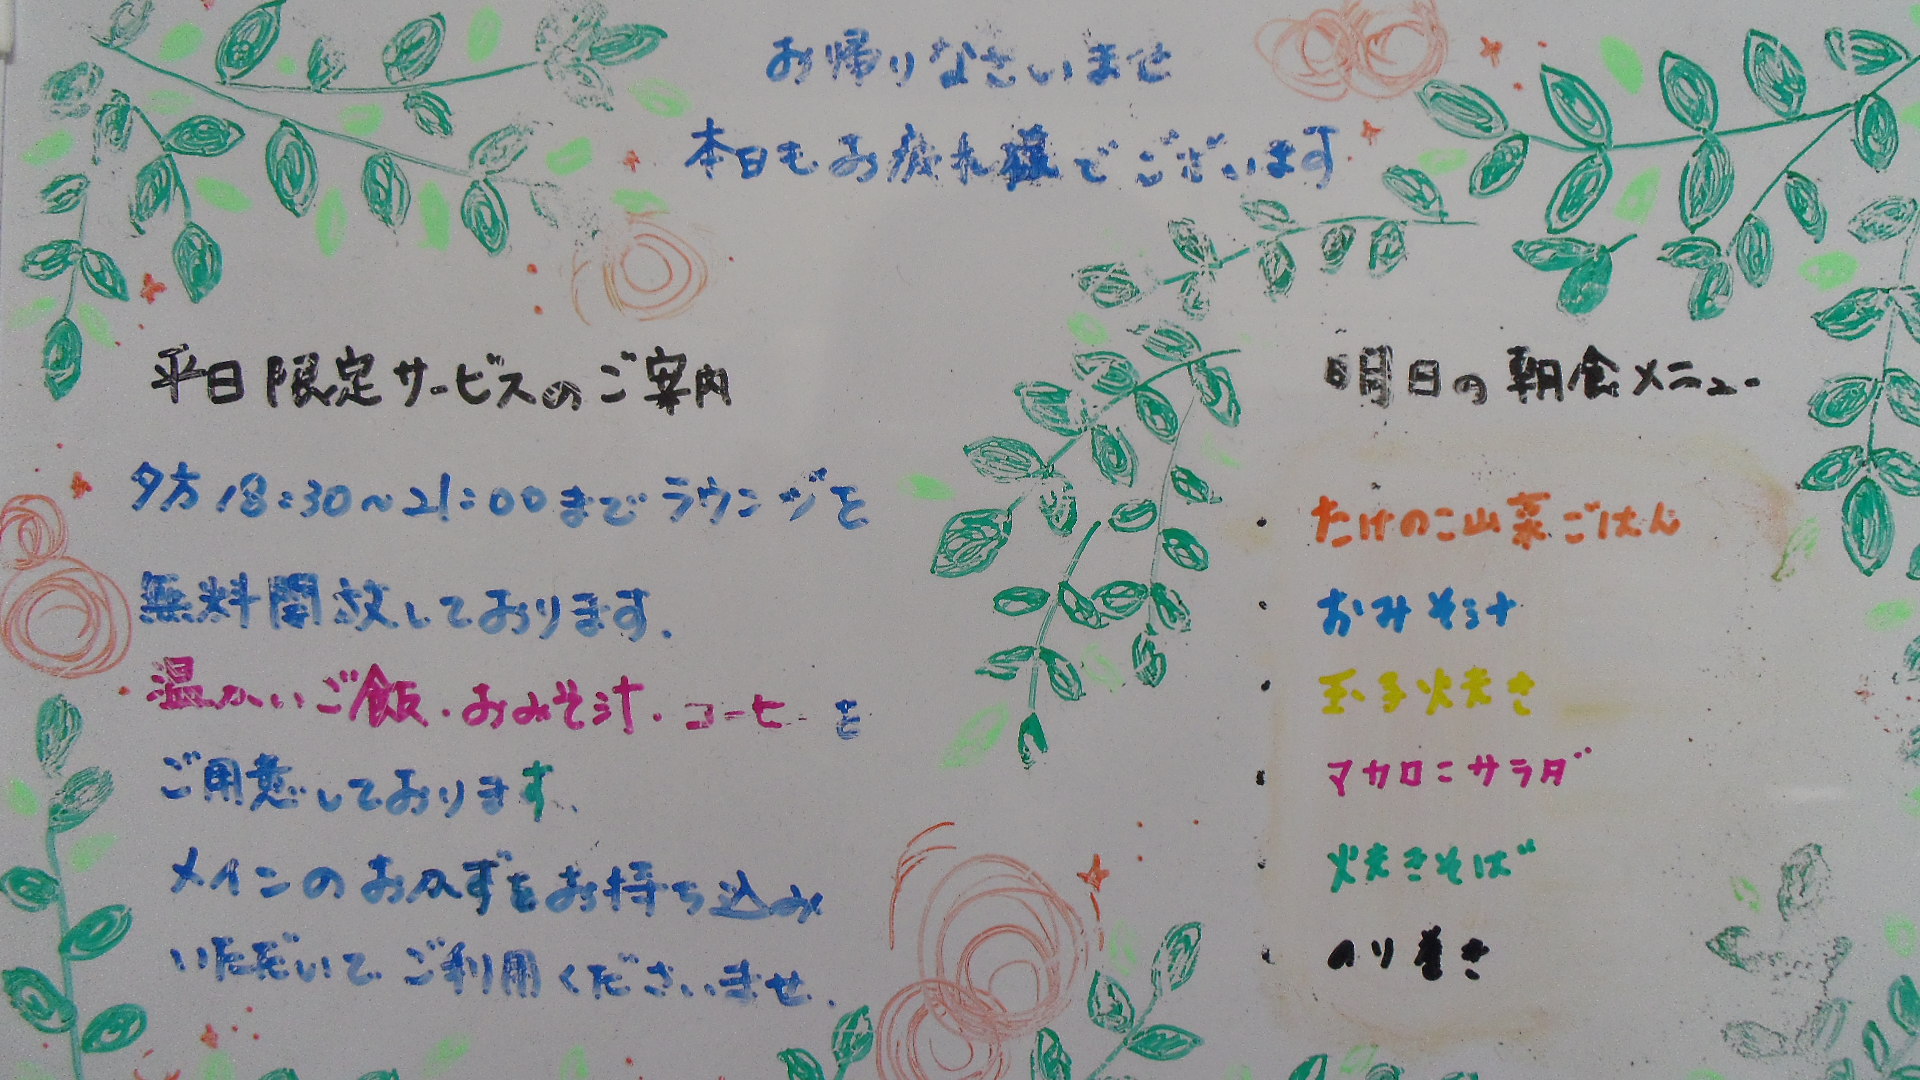 お帰りなさいませ
本日もお疲れ様でございます
平日限定サービスのご案内
夕方18:30〜21:00までラウンジを
無料開放しております.
温かいご飯・おみそ汁・コーヒーを
ご用意しております、
メインのおかずをお持ち込み
いただいてご利用くださいませ.
明日の朝食メニュー
・たけのこ山菜ごはん
・おみそ汁
・玉子焼き
・マカロニサラダ
・焼きそば
・のり巻き